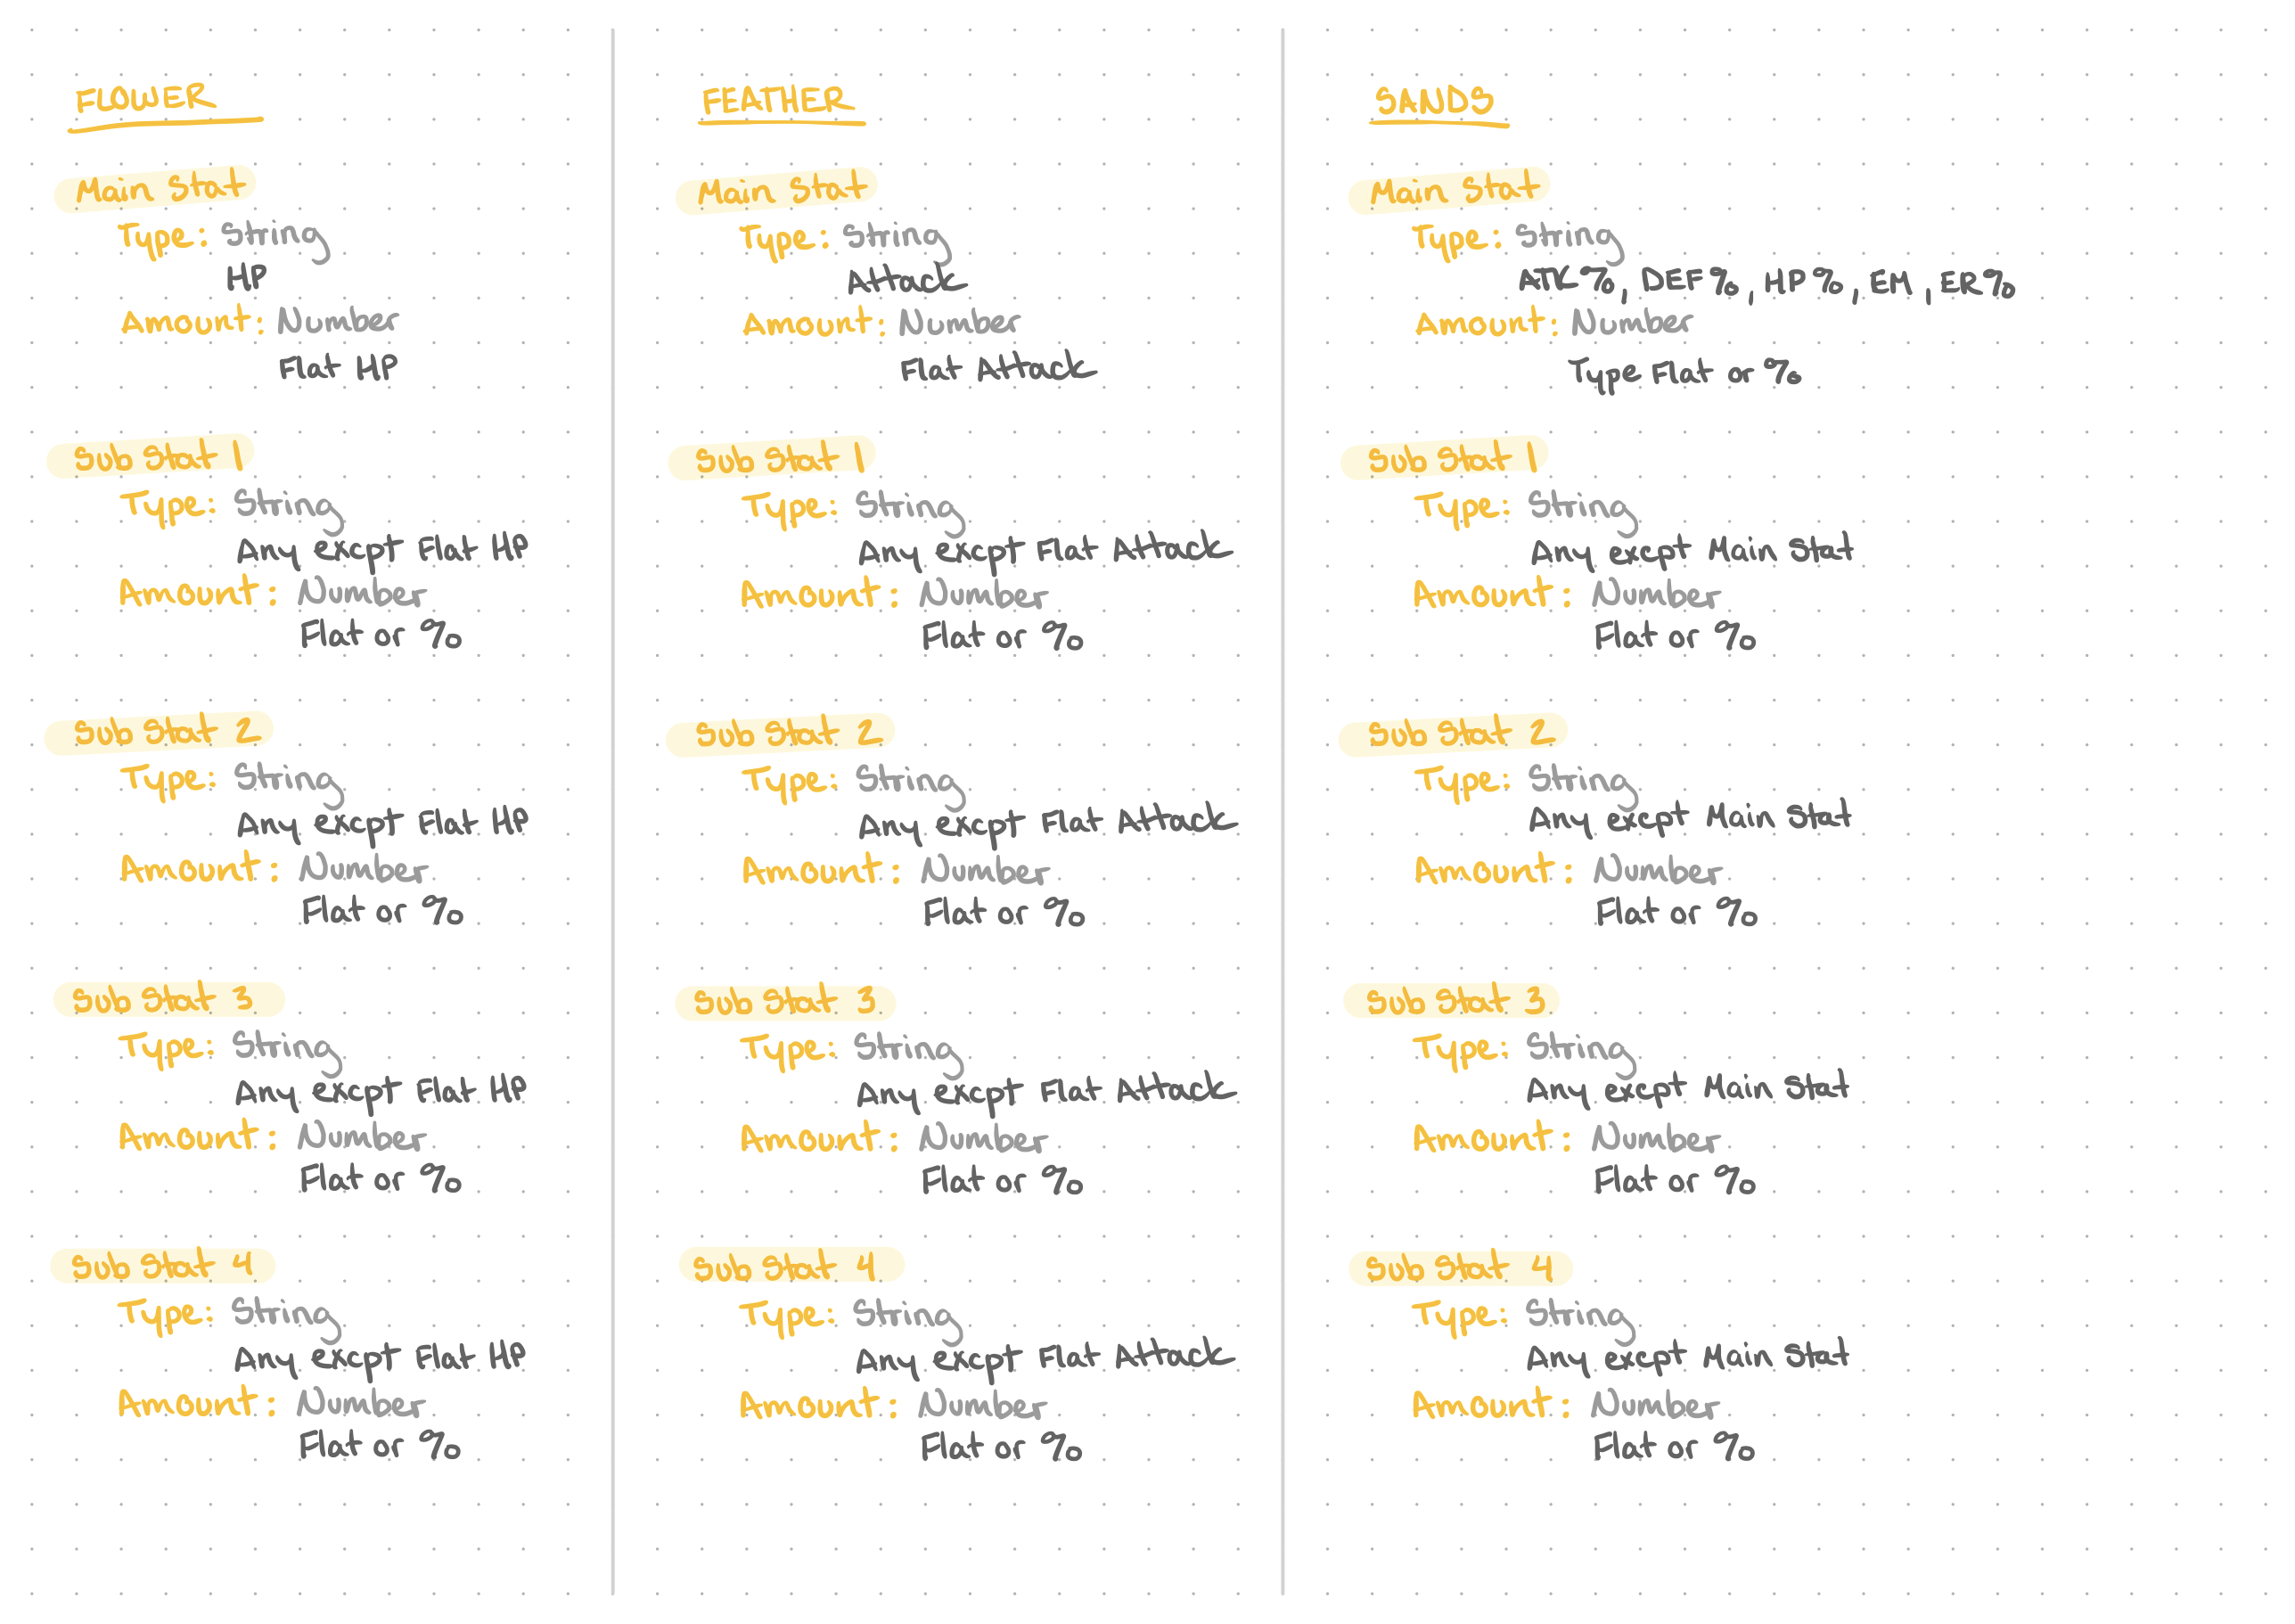 FLOWER
Main Stat
Type: String
HP
Amount: Number
Flat HP
Sub Stat 1
Type: String
Any except Flat HP
Amount: Number
Flat or %
Sub Stat 2
Type: String
Any except Flat HP
Amount: Number
Flat or %
Sub Stat 3
Type: String
Any except Flat HP
Amount: Number
Flat or %
Sub Stat 4
Type: String
Any except Flat HP
Amount: Number
Flat or %
FEATHER
Main Stat
Type: String
Attack
Amount: Number
Flat Attack
Sub Stat 1
Type: String
Any except Flat Attack
Amount: Number
Flat or %
Sub Stat 2
Type: String
Any except Flat Attack
Amount: Number
Flat or %
Sub Stat 3
Type: String
Any except Flat Attack
Amount: Number
Flat or %
Sub Stat 4
Type: String
Any except Flat Attack
Amount: Number
Flat or %
SANDS
Main Stat
Type: String
ATK%, DEF%, HP%, EM, ER%
Amount: Number
Type Flat or %
Sub Stat 1
Type: String
Any except Main Stat
Amount: Number
Flat or %
Sub Stat 2
Type: String
Any except Main Stat
Amount: Number
Flat or %
Sub Stat 3
Type: String
Any except Main Stat
Amount: Number
Flat or %
Sub Stat 4
Type: String
Any except Main Stat
Amount: Number
Flat or %